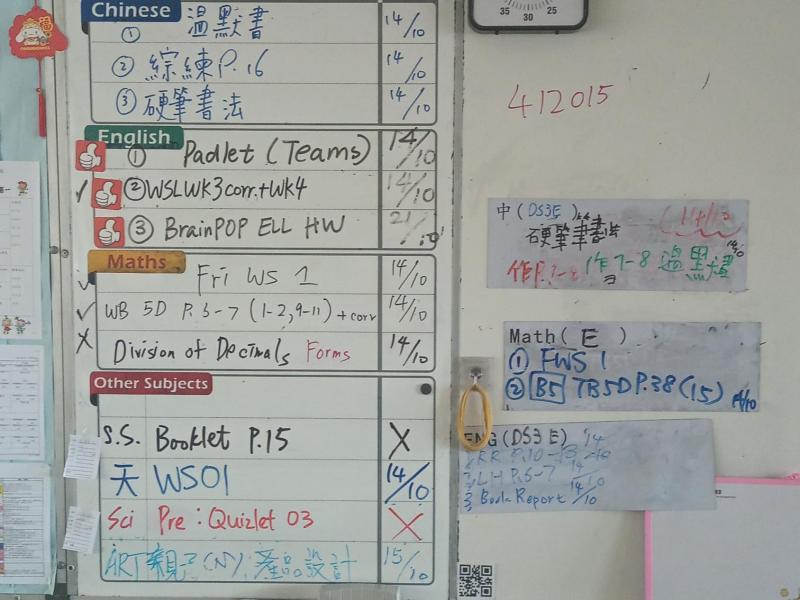 Chinese
① 溫默書 14/10
② 綜練P.16 14/10
③ 硬筆書法 14/10
English
① Padlet (Teams) 14/10
✓ ② WSLWK3corr.+WK4 14/10
③ BrainPOP ELL HW 21/10
Maths
✓ Fri WS 1 14/10
✓ WB 5D P.6-7 (1-2, 9-11) + corr 14/10
X Division of Decimals Forms 14/10
Other Subjects
S.S. Booklet P.15 X
天 WS01 14/10
Sci Pre: Quizlet 03 X
ART親子(N) 產品設計 15/10
35 30 25
412015
中(DS3E) (14/10
硬筆書法
作7-8 溫默書 14/10
Math( E )
① FWS 1
② B5 TB5D P.38 (15) 14/10
ENG(DS3 E) 14
RR P.10-13 /10
LH P.6-7 14/10
3 Book Report 14/10